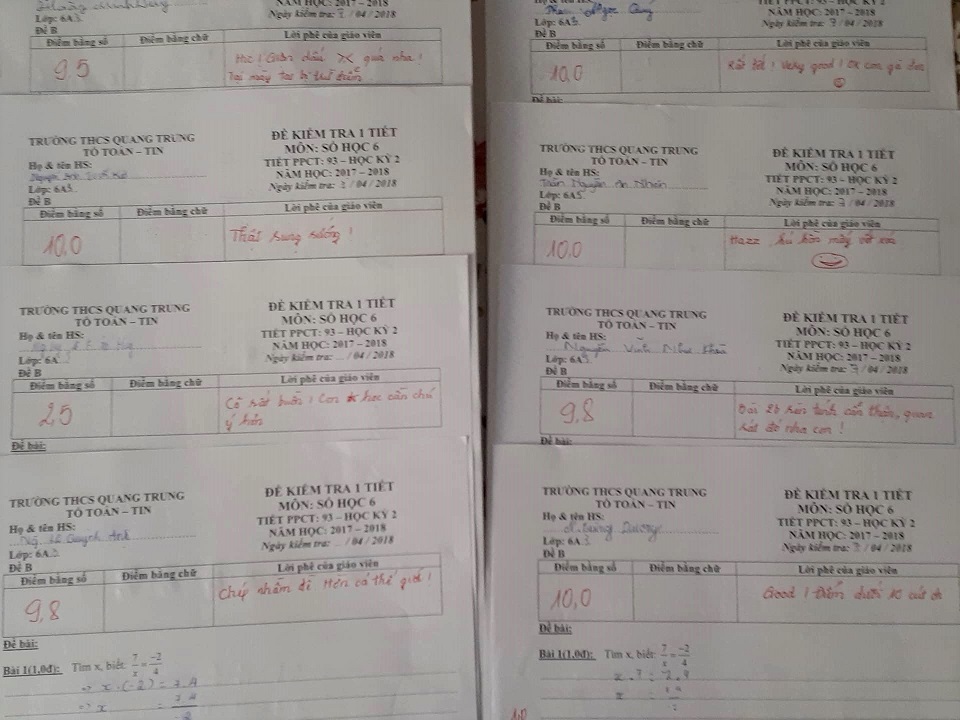 Lớp: 6A3
NĂM HỌC: 2017 – 2018
Ngày kiểm tra: 7 / 04 / 2018
Đề B
Điểm bằng số Điểm bằng chữ Lời phê của giáo viên
95
quá nha!
Ngọc
Lớp: 6A3
NĂM HỌC: 2017 – 2018
Ngày kiểm tra: 7 / 04 / 2018
Đề B
Điểm bằng số Điểm bằng chữ Lời phê của giáo viên
10,0
Rất tốt! Very good!
Đề bài:
TRƯỜNG THCS QUANG TRUNG
TỔ TOÁN – TIN
ĐỀ KIỂM TRA 1 TIẾT
MÔN: SỐ HỌC 6
TIẾT PPCT: 93 – HỌC KỲ 2
NĂM HỌC: 2017 – 2018
Ngày kiểm tra: 7 / 04 / 2018
Họ & tên HS:
Lớp: 6A3
Đề B
Điểm bằng số Điểm bằng chữ Lời phê của giáo viên
10,0
Thật sung sướng!
TRƯỜNG THCS QUANG TRUNG
TỔ TOÁN – TIN
ĐỀ KIỂM TRA 1 TIẾT
MÔN: SỐ HỌC 6
TIẾT PPCT: 93 – HỌC KỲ 2
NĂM HỌC: 2017 – 2018
Ngày kiểm tra: 7 / 04 / 2018
Họ & tên HS:
Trần Nguyễn An Nhiên
Lớp: 6A3
Đề B
Điểm bằng số Điểm bằng chữ Lời phê của giáo viên
10,0
Hazz
TRƯỜNG THCS QUANG TRUNG
TỔ TOÁN – TIN
ĐỀ KIỂM TRA 1 TIẾT
MÔN: SỐ HỌC 6
TIẾT PPCT: 93 – HỌC KỲ 2
NĂM HỌC: 2017 – 2018
Ngày kiểm tra: … / 04 / 2018
Họ & tên HS:
Lớp: 6A
Đề B
Điểm bằng số Điểm bằng chữ Lời phê của giáo viên
2,5
Cô rất buồn! Con học cần chú
ý hơn
Đề bài:
TRƯỜNG THCS QUANG TRUNG
TỔ TOÁN – TIN
ĐỀ KIỂM TRA 1 TIẾT
MÔN: SỐ HỌC 6
TIẾT PPCT: 93 – HỌC KỲ 2
NĂM HỌC: 2017 – 2018
Ngày kiểm tra: 7 / 04 / 2018
Họ & tên HS:
Nguyễn Vĩnh Như
Lớp: 6A3
Đề B
Điểm bằng số Điểm bằng chữ Lời phê của giáo viên
9,8
Bài 2b nên tính cẩn thận, quan
sát đề nha con!
Đề bài:
TRƯỜNG THCS QUANG TRUNG
TỔ TOÁN – TIN
ĐỀ KIỂM TRA 1 TIẾT
MÔN: SỐ HỌC 6
TIẾT PPCT: 93 – HỌC KỲ 2
NĂM HỌC: 2017 – 2018
Ngày kiểm tra: … / 04 / 2018
Họ & tên HS:
Quỳnh Anh
Lớp: 6A3
Đề B
Điểm bằng số Điểm bằng chữ Lời phê của giáo viên
9,8
Chép nhầm đề Hên cả thế giới!
Đề bài:
Bài 1(1,0đ): Tìm x, biết: 7/x = -2/4
=> x.(-2) = 7.4
=> x = 7.4
TRƯỜNG THCS QUANG TRUNG
TỔ TOÁN – TIN
ĐỀ KIỂM TRA 1 TIẾT
MÔN: SỐ HỌC 6
TIẾT PPCT: 93 – HỌC KỲ 2
NĂM HỌC: 2017 – 2018
Ngày kiểm tra: 7 / 04 / 2018
Họ & tên HS:
Dương
Lớp: 6A3
Đề B
Điểm bằng số Điểm bằng chữ Lời phê của giáo viên
10,0
Good! Điểm dưới 10
Đề bài:
Bài 1(1,0đ): Tìm x, biết: 7/x = -2/4
1,0